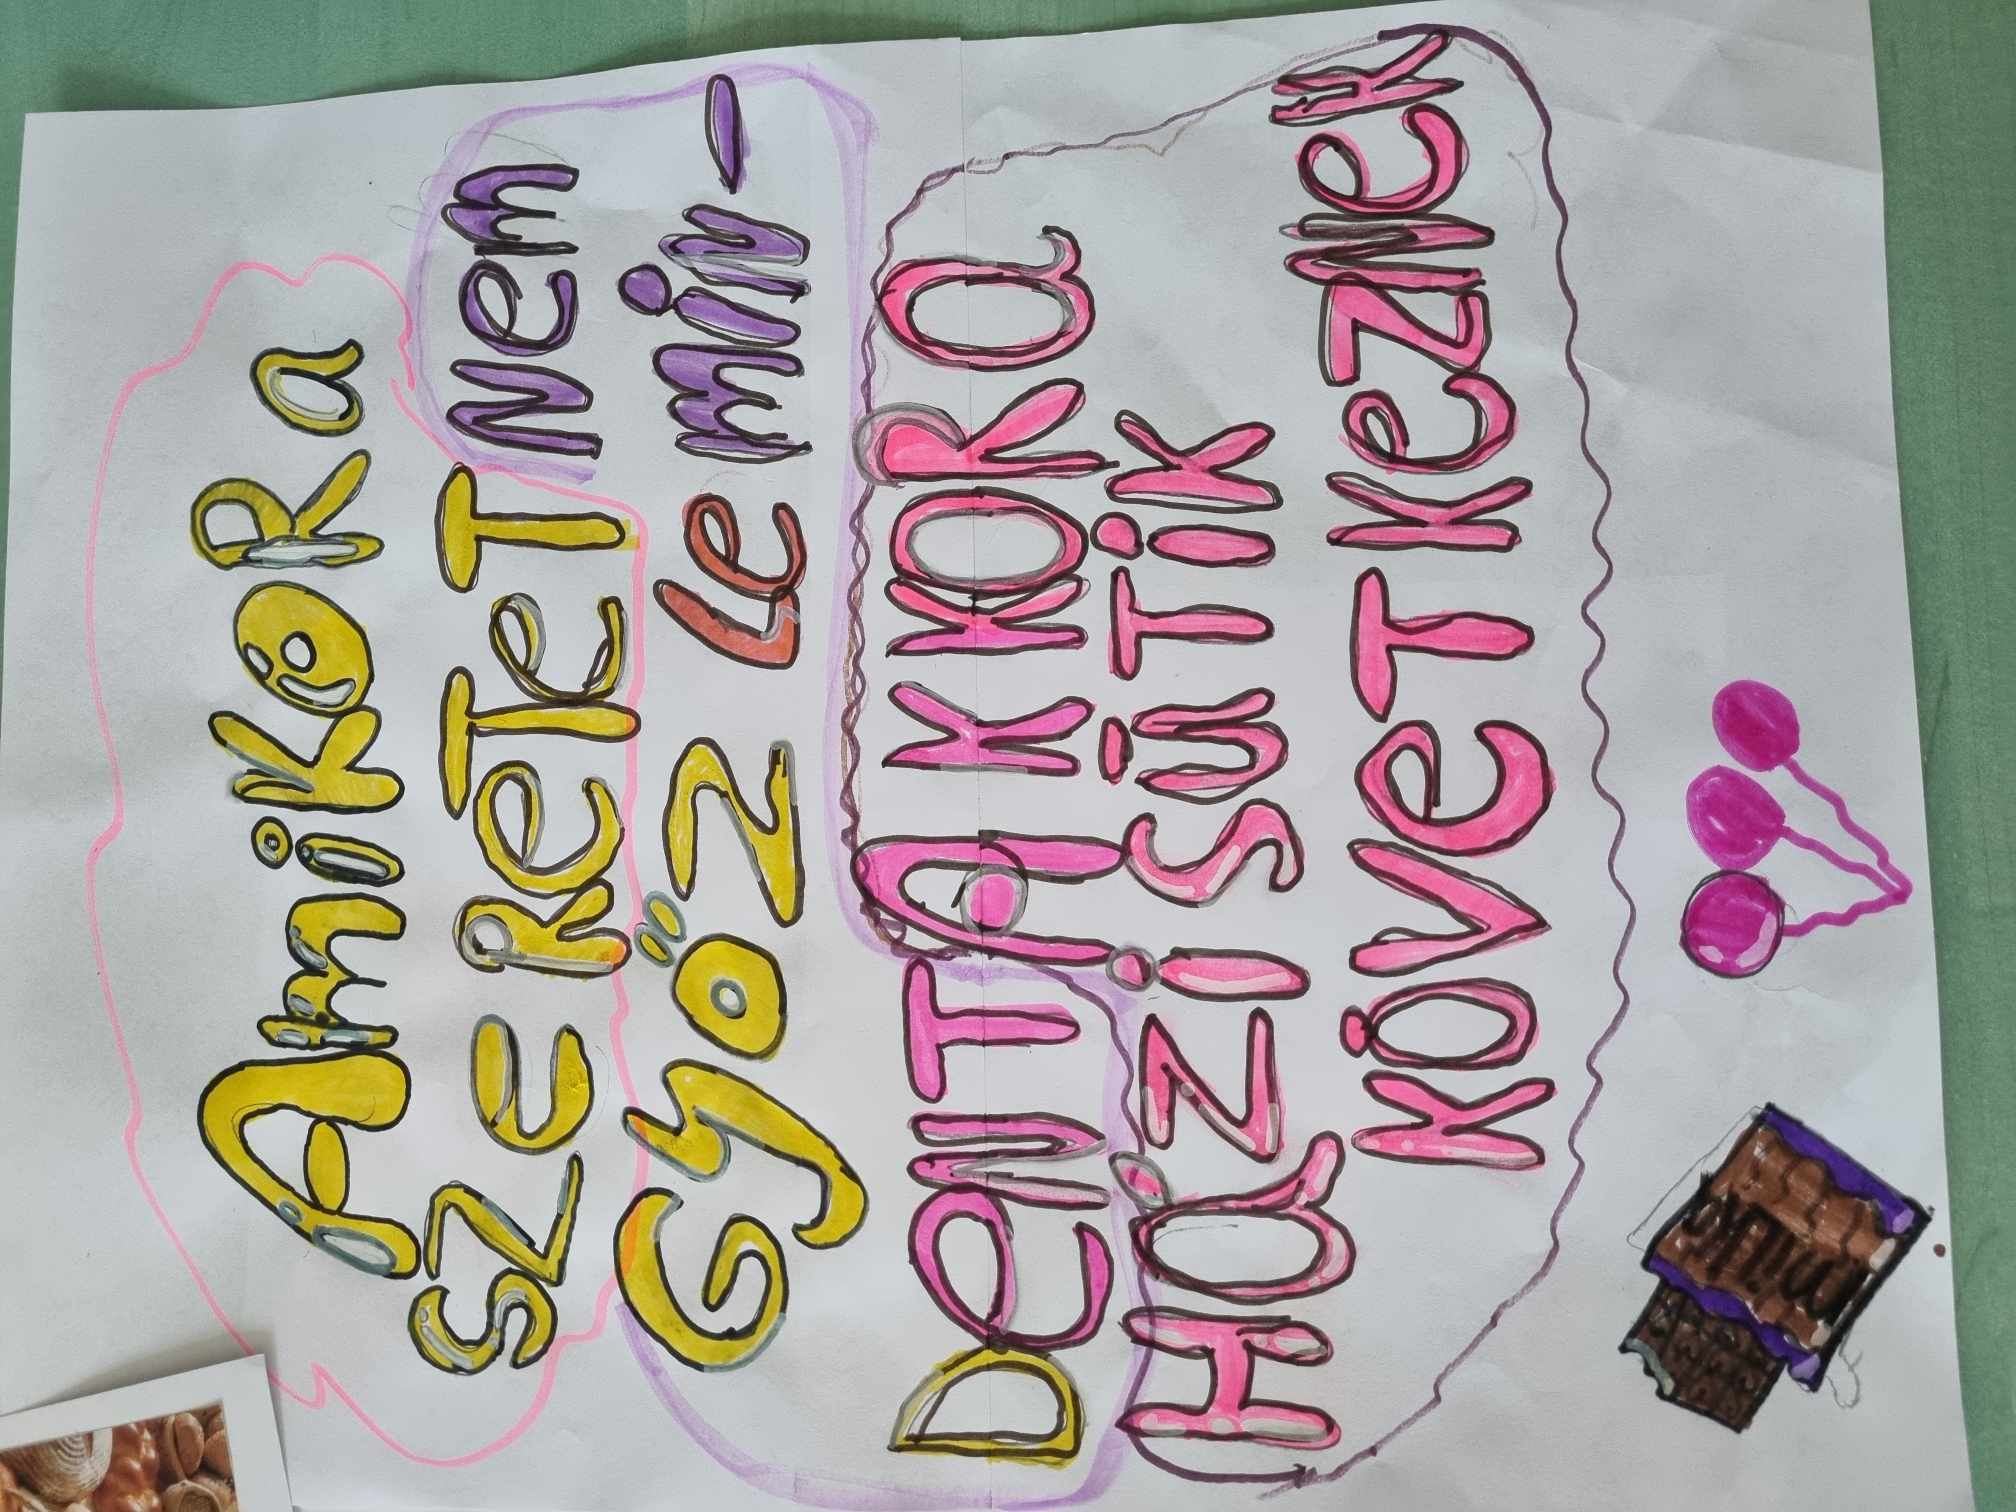 AmiKoR a
SZeReTeT Nem
GyöZ Le miN-
DeNT AKKOR a
HáZi SüTiK
KöVeTKeZNeK